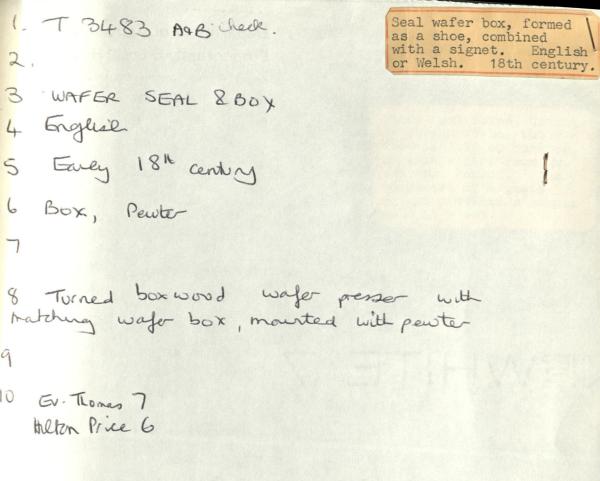 1. T 3483 A&B check.
Seal wafer box, formed
as a shoe, combined
with a signet. English
or Welsh. 18th century.
2.
3 WAFER SEAL & BOX
4 English
5 Early 18th century
6 Box, Pewter
7
8 Turned boxwood wafer presser with
matching wafer box, mounted with pewter
9
10 Ev. Thomas 7
Hilton Price 6